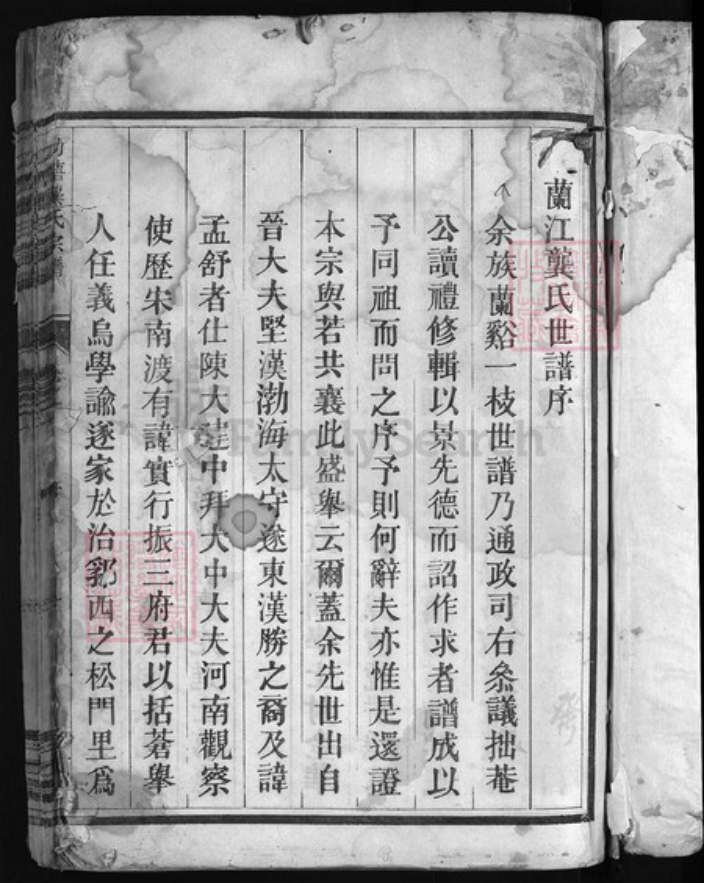 蘭江龔氏世譜序
余族蘭谿一枝世譜乃通政司右叅議拙菴
公讀禮修輯以景先德而詔作求者譜成以
予同祖而問之序予則何辭夫亦惟是還證
本宗與若共襄此盛舉云爾蓋余先世出自
晉大夫堅漢渤海太守遂東漢勝之裔及諱
孟舒者仕陳大建中拜大中大夫河南觀察
使歷宋南渡有諱實行振三府君以括蒼舉
人任義烏學諭遂家於治鄒西之松門里爲
龔氏宗譜
FamilySearch